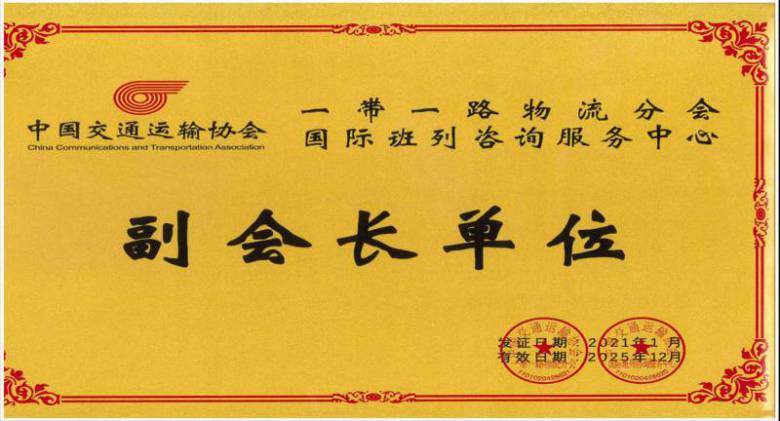 中国交通运输协会
China Communications and Transportation Association
一带一路物流分会
国际班列咨询服务中心
副会长单位
发证日期：2021年1月
有效日期：2025年12月